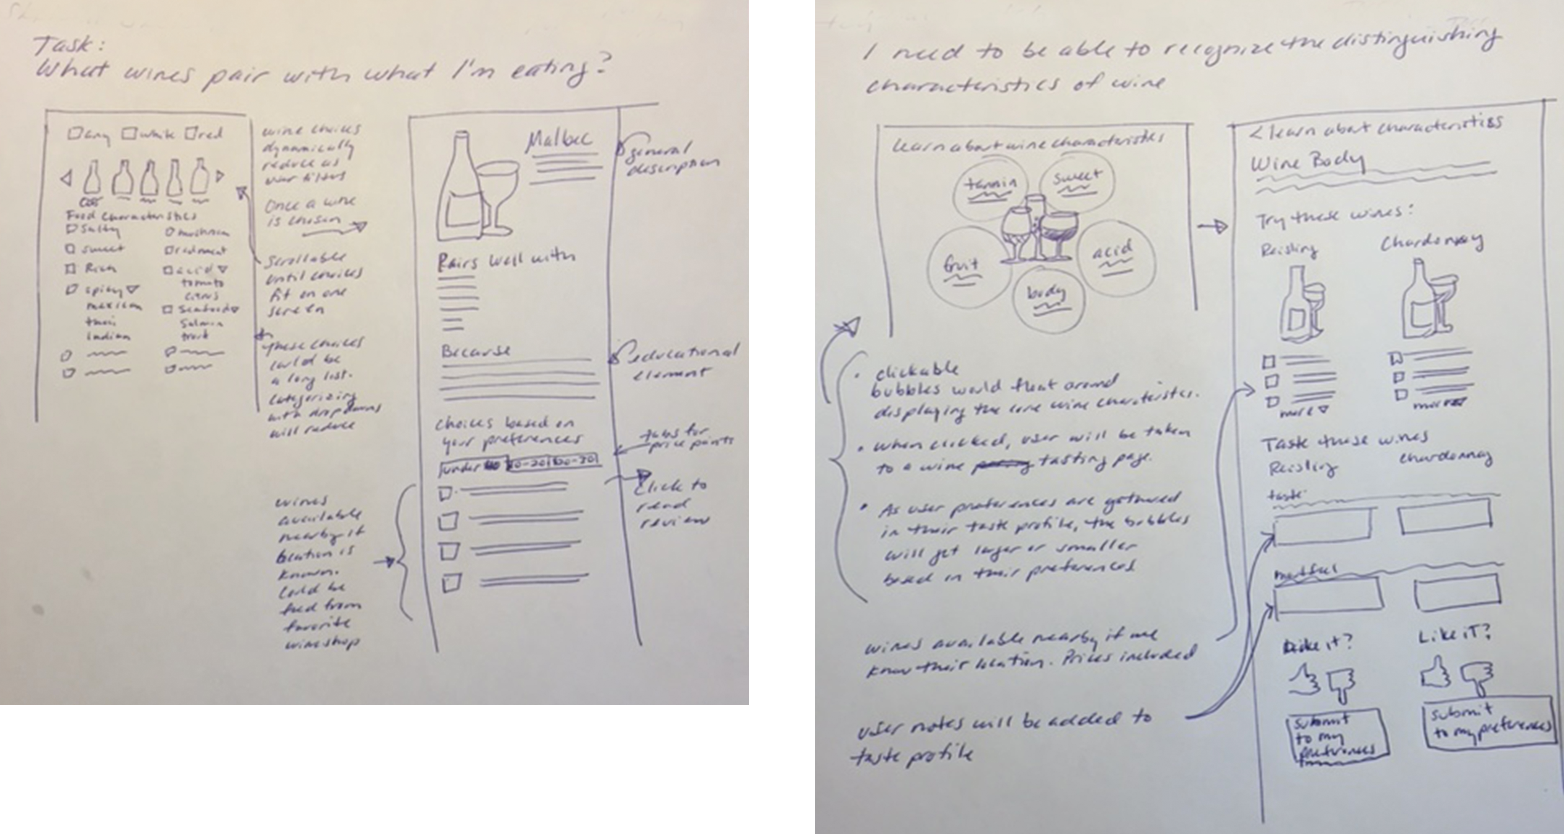 Task:
What wines pair with what I'm eating?
any white red
Food Characteristics
salty
sweet
Rich
spicy
mexican
thai
Indian
mushroom
red meat
acid
tomato
citrus
Seafood
Salmon
trout
wine choices
dynamically
reduce as
user filters
Once a wine
is chosen
Scrollable
until choices
fit on one
screen
These choices
could be
a long list.
categorizing
with dropdowns
will reduce
wines
available
nearby if
location is
known.
Could be
feed from
favorite
wine shop
Malbec
Pairs well with
Because
choices based on
your preferences
under 10 10-20 20-30
general
description
educational
element
tabs for
price points
Click to
read
review
I need to be able to recognize the distinguishing
characteristics of wine
learn about wine characteristics
tannin
sweet
fruit
acid
body
• clickable
bubbles would float around
displaying the core wine charcteristcs.
• when clicked, user will be taken
to a wine tasting page.
• As user preferences are gathered
in their taste profile, the bubbles
will get larger or smaller
based on their preferences
wines available nearby if we
know their location. Prices included
user notes will be added to
taste profile
< learn about characteristics
Wine Body
Try these wines:
Reisling Chardonnay
more more
Taste these wines
Reisling chardonnay
taste
mouthful
Like it? Like it?
submit
to my
preferences
submit
to my preferences